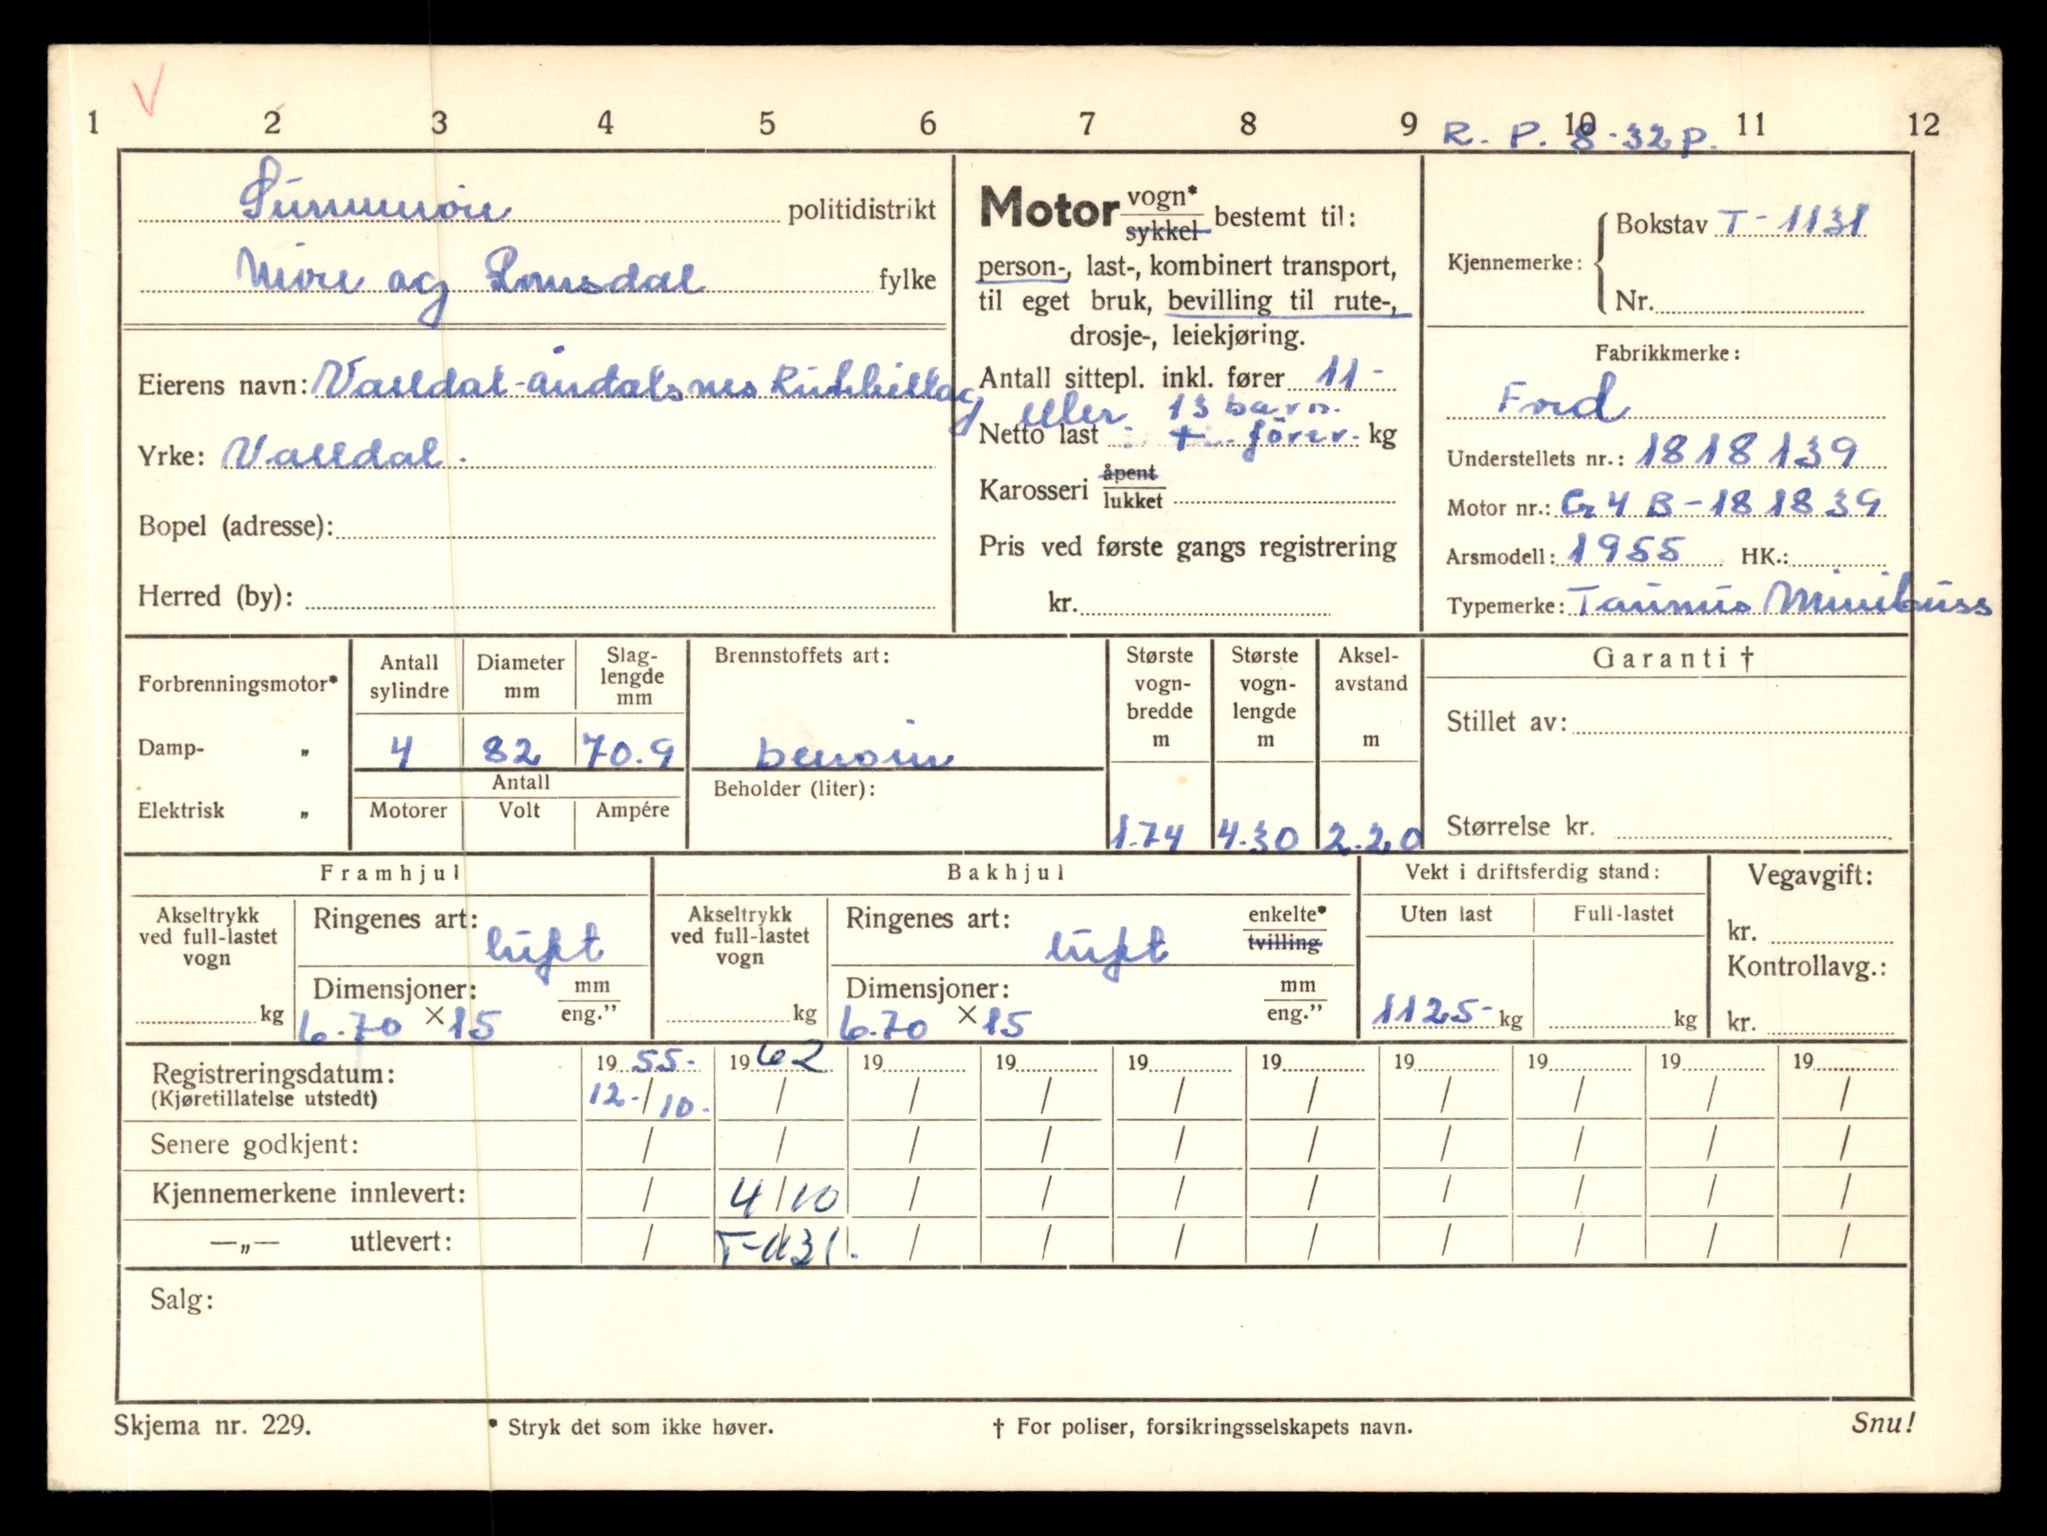 1 2 3 4 5 6 7 8 9 10 11 12
R. P. 8-32 p.
Sunnmøre politidistrikt
Møre og Romsdal fylke
Eierens navn: Valldal-Åndalsnes Rutebillag
Yrke: Valldal.
Bopel (adresse):
Herred (by):
Motor vogn* sykkel bestemt til:
person-, last-, kombinert transport,
til eget bruk, bevilling til rute-,
drosje-, leiekjøring.
Antall sittepl. inkl. fører 11-
eller 13 barn.
Netto last + fører. kg
Karosseri åpent lukket
Pris ved første gangs registrering
kr.
Kjennemerke: Bokstav T-1131
Nr.
Fabrikkmerke:
Ford
Understellets nr.: 1818139
Motor nr.: G4B-181839
Arsmodell: 1955 HK.:
Typemerke: Taunus Minibuss
Forbrenningsmotor*
Damp- „
Elektrisk „
Antall sylindre Diameter mm Slag-lengde mm
4 82 70.9
Antall
Motorer Volt Ampére
Brennstoffets art:
bensin
Beholder (liter):
Største vogn-bredde m Største vogn-lengde m Aksel-avstand m
1.74 4.30 2.20
Garanti †
Stillet av:
Størrelse kr.
Framhjul
Akseltrykk ved full-lastet vogn
kg
Ringenes art: luft
Dimensjoner: mm eng."
6.70 × 15
Bakhjul
Akseltrykk ved full-lastet vogn
kg
Ringenes art: luft enkelte* tvilling
Dimensjoner: mm eng."
6.70 × 15
Vekt i driftsferdig stand:
Uten last Full-lastet
1125- kg kg
Vegavgift:
kr.
Kontrollavg.:
kr.
Registreringsdatum: 19 55. 19 62 19 19 19 19 19 19 19 19
(Kjøretillatelse utstedt) 12./10. / / / / / / / / /
Senere godkjent: / / / / / / / / / /
Kjennemerkene innlevert: / 4/10 / / / / / / / /
—„— utlevert: / T-1131. / / / / / / / /
Salg:
Skjema nr. 229. * Stryk det som ikke høver. † For poliser, forsikringsselskapets navn. Snu!